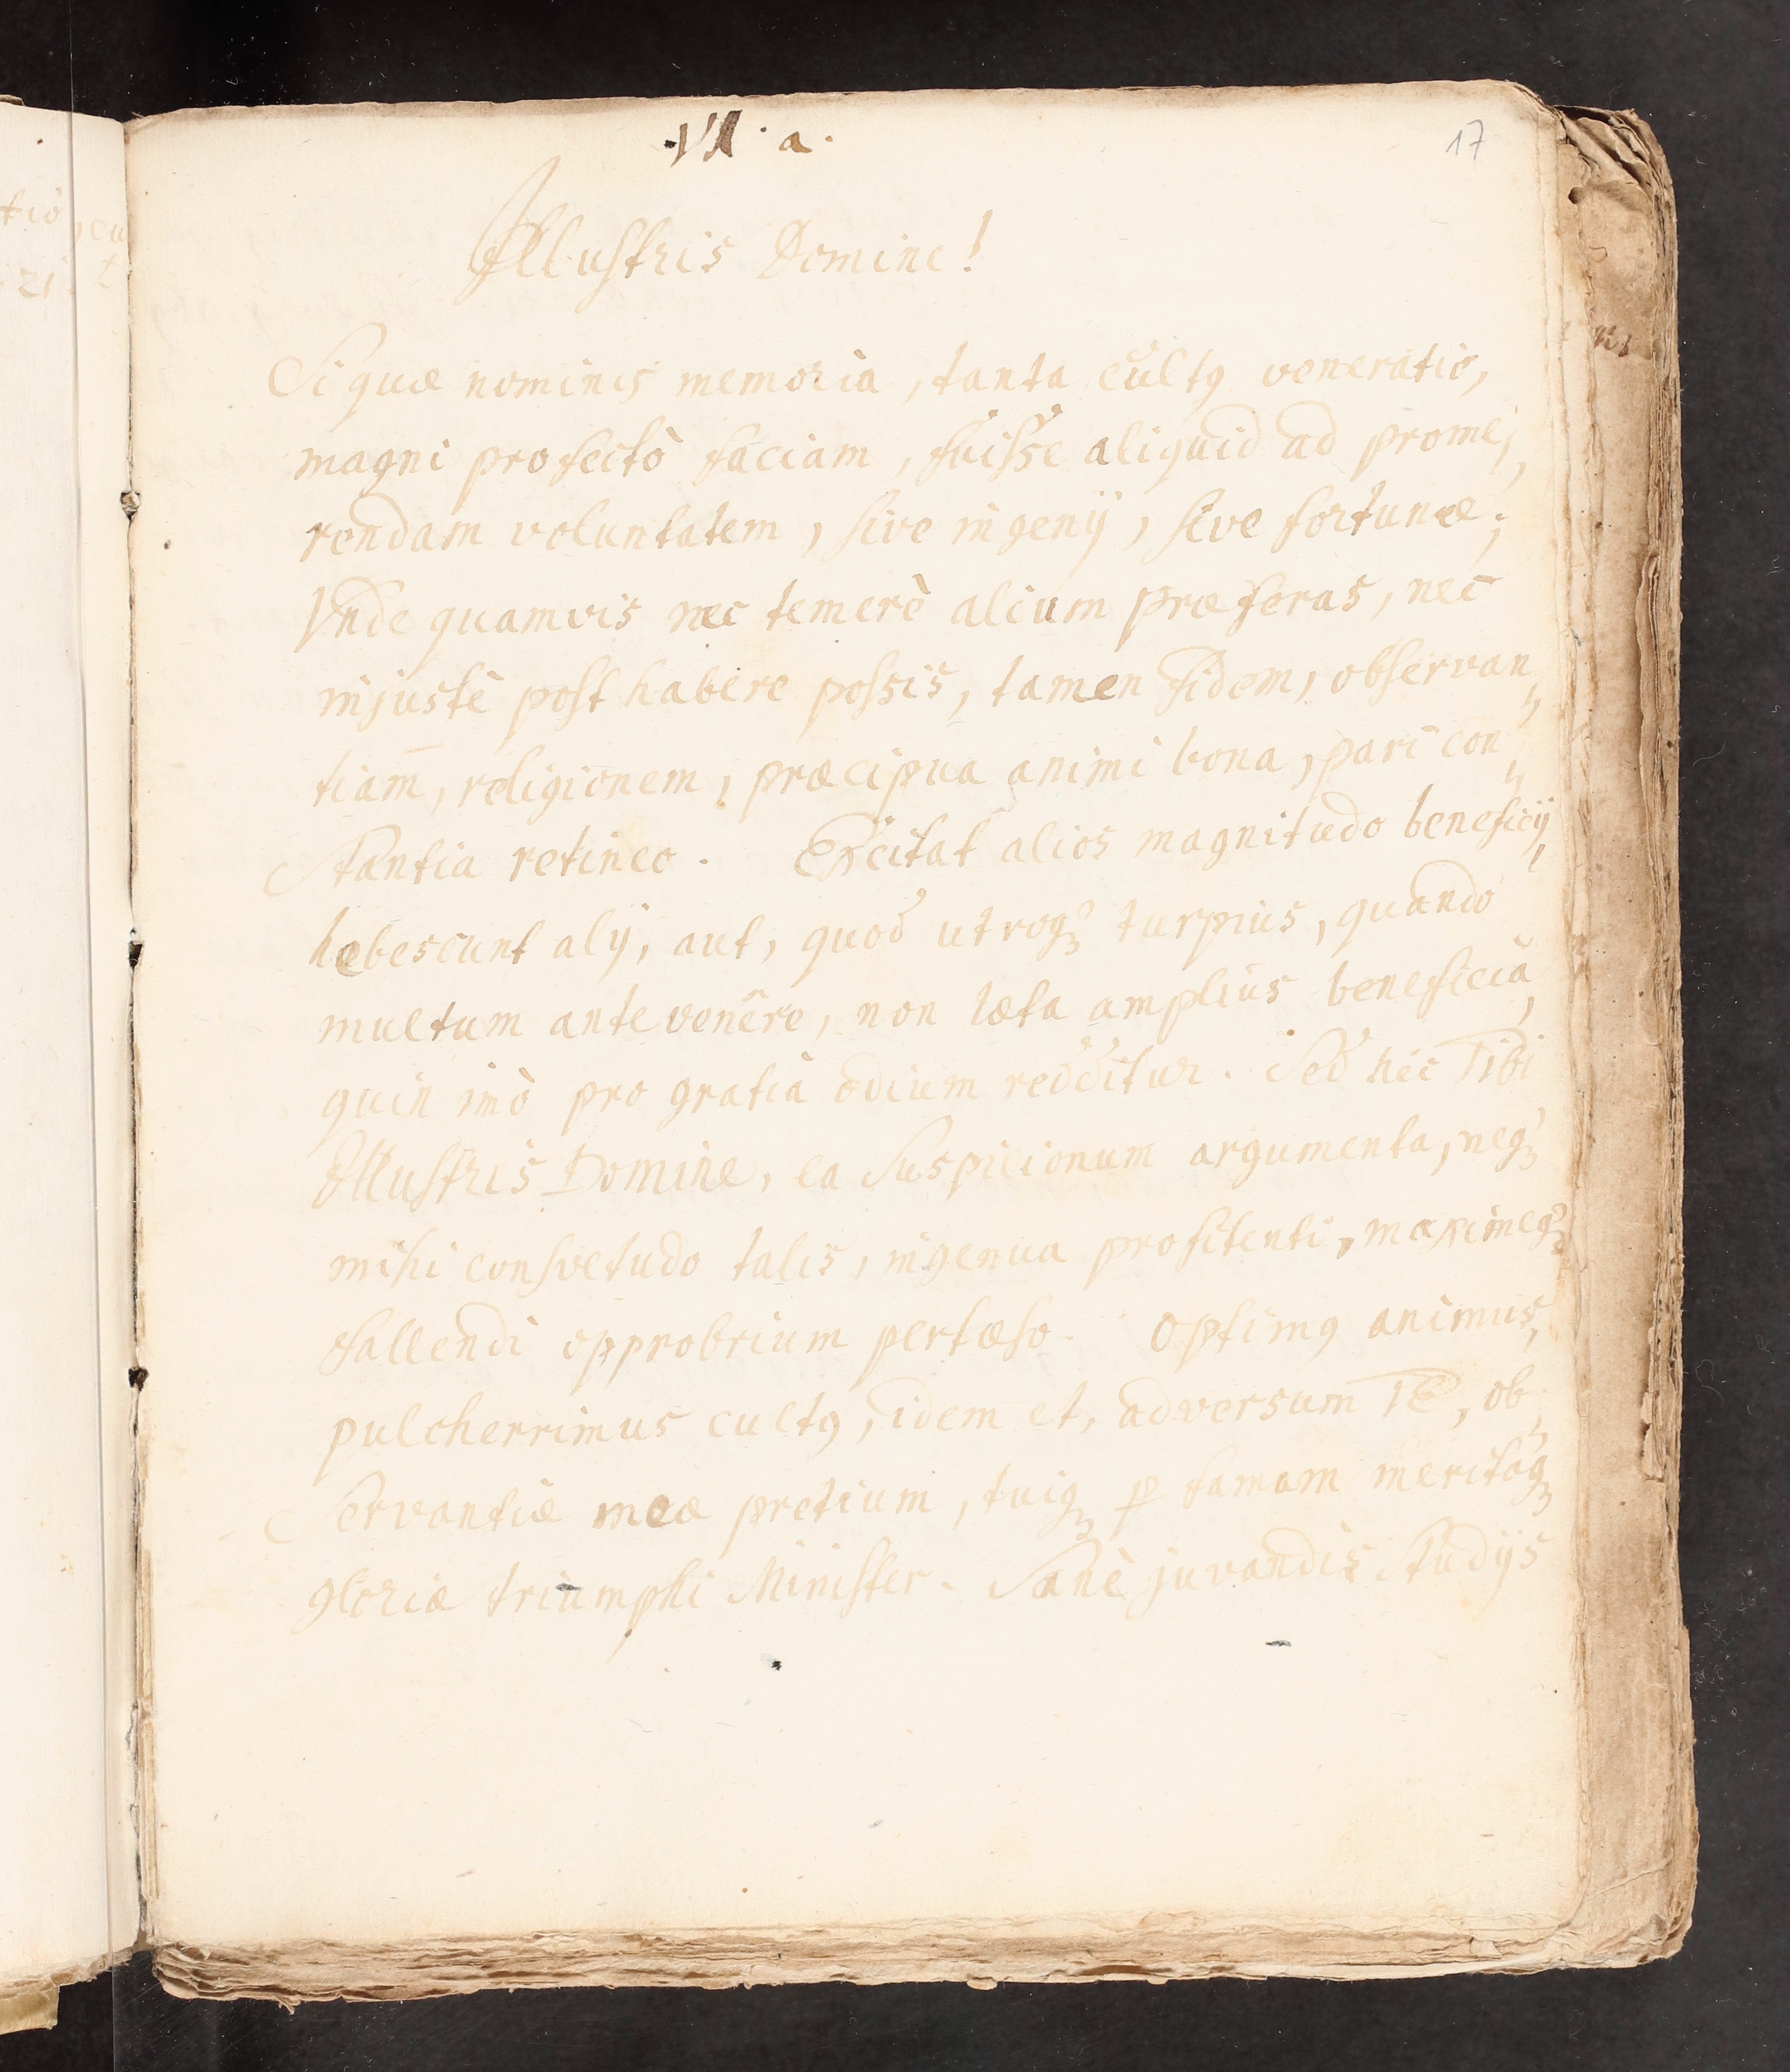 VI. a.
17
Illustris Domine!
Si quæ nominis memoria, tanta cultꝰ veneratio,
magni profectò faciam, fuisse aliquid ad prome,,
rendam voluntatem, sive ingenij, sive fortunæ;
Vnde quamvis nec temerè alium præferas, nec
injustè post habere possis, tamen fidem, observan,,
tiam, religionem, præcipua animi bona, pari con,,
stantia retineo. Excitat alios magnitudo beneficij,
hebescunt alij, aut, quod utroqꝫ turpius, quando
multum antevenêre, non læta amplius beneficia,
quin imò pro gratia odium redditur. Sed hic Tibi
Illustris Domine, ea suspicionum argumenta, neqꝫ
mihi consvetudo talis, ingenua profitenti, maximeqꝫ
fallendi opprobrium pertæso. Optimꝰ animus,
pulcherrimus cultꝰ, idem et, adversum Te, ob,,
servantiæ meæ pretium, tuiqꝫ ꝑ famam meritaqꝫ
gloriæ triumphi Minister. Sanè juvandis studijs